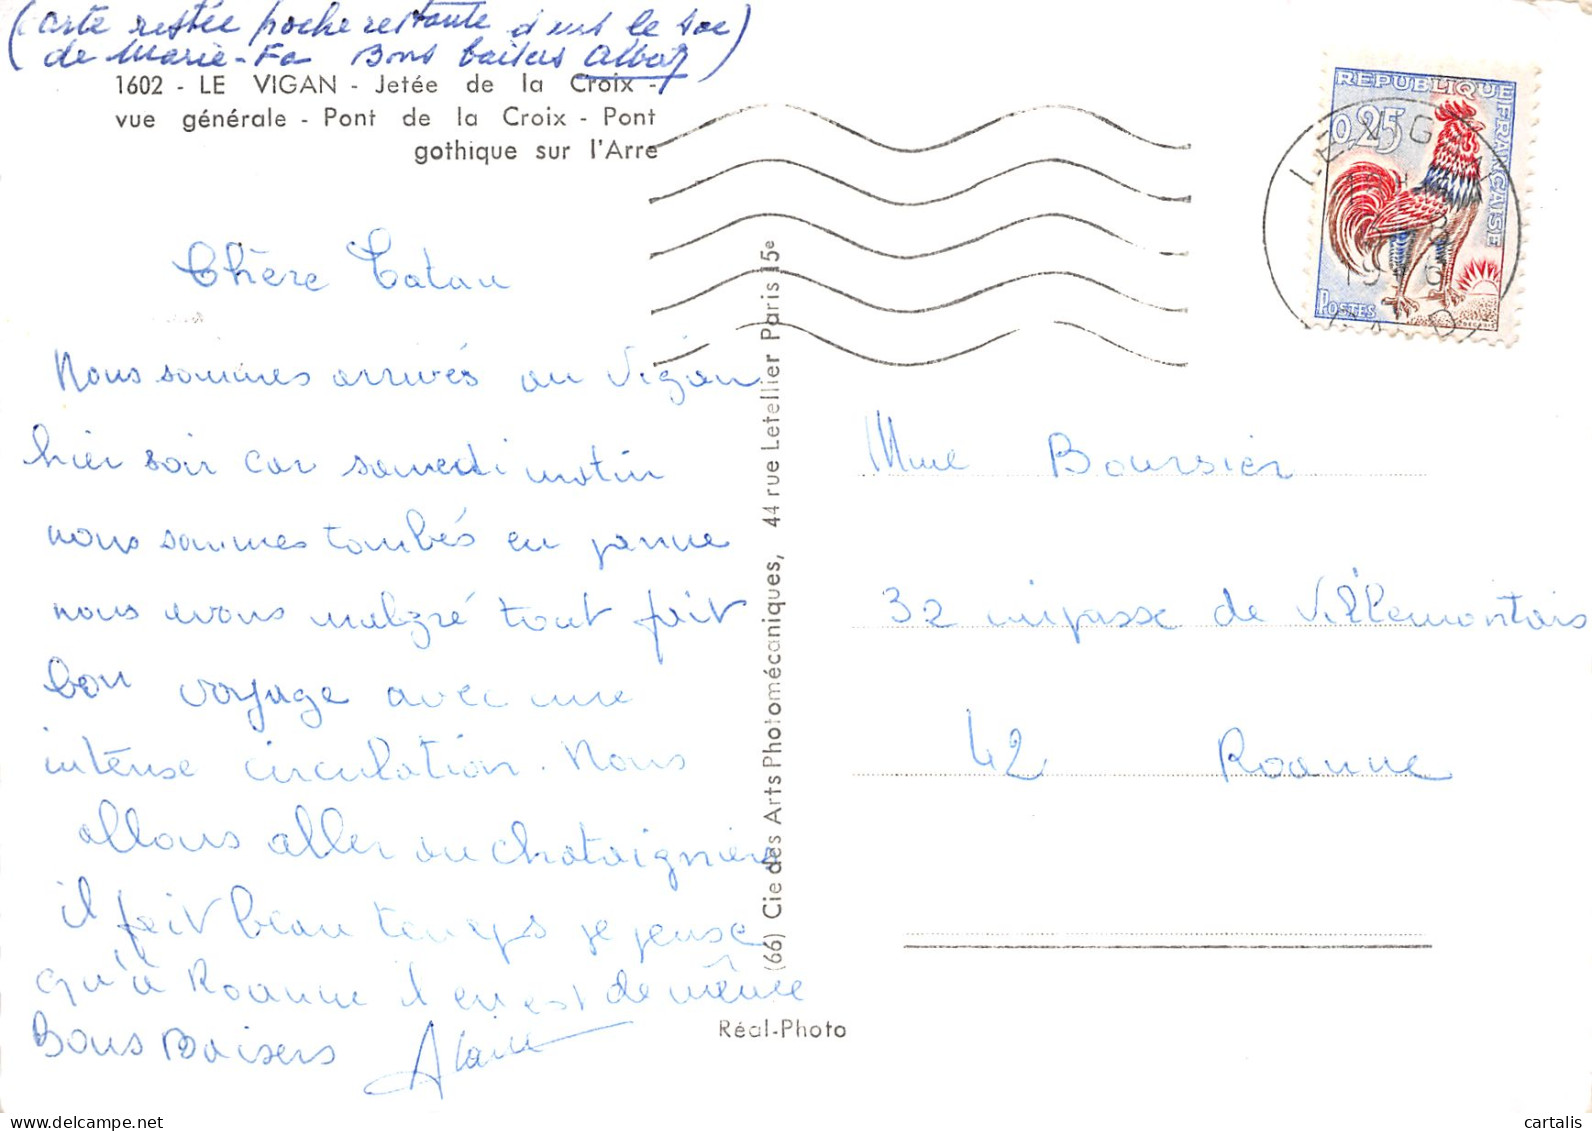 (Carte restée poche restante dans le sac
de Marie-Fa Bons baisers Albert)
1602 - LE VIGAN - Jetée de la Croix -
vue générale - Pont de la Croix - Pont
gothique sur l'Arre
REPUBLIQUE FRANÇAISE
0,25
POSTES
LE VIGAN
Chère Tatau
Nous sommes arrivés au Vigan
hier soir car samedi matin
nous sommes tombés en panne
nous avons malgré tout fait
bon voyage avec une
intense circulation. Nous
allons aller au chataignier
il fait beau temps je pense
qu'à Roanne il en est de même
Bons Baisers Alain
(66) Cie des Arts Photomécaniques, 44 rue Letellier Paris 15e
Réal-Photo
Mme Boursier
32 impasse de Villemontais
42 Roanne
cartalis